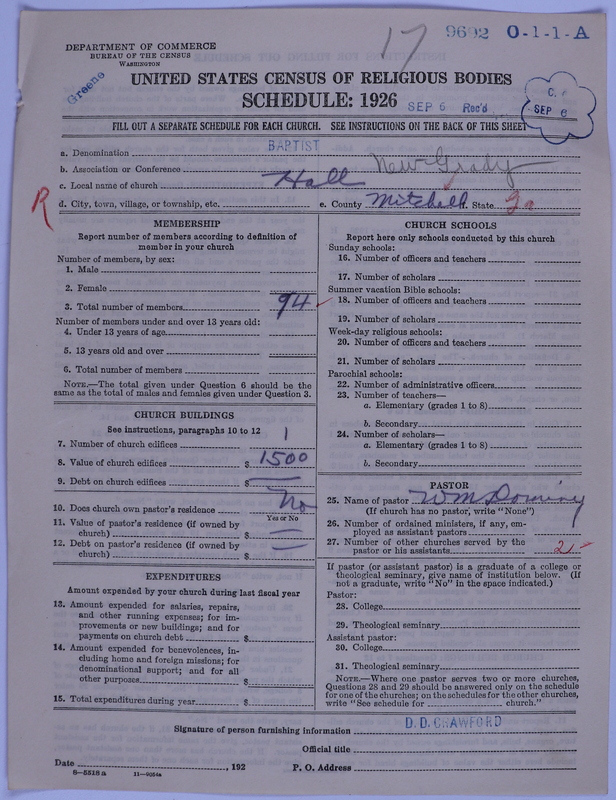 17 9692 0-1-1-A
DEPARTMENT OF COMMERCE
BUREAU OF THE CENSUS
WASHINGTON
Greene
UNITED STATES CENSUS OF RELIGIOUS BODIES
SCHEDULE: 1926 SEP 6 Rec'd
SEP 6
FILL OUT A SEPARATE SCHEDULE FOR EACH CHURCH. SEE INSTRUCTIONS ON THE BACK OF THIS SHEET
a. Denomination BAPTIST
b. Association or Conference New Grady
c. Local name of church Hall
d. City, town, village, or township, etc. e. County Mitchell State Ga
R
MEMBERSHIP
Report number of members according to definition of
member in your church
Number of members, by sex:
1. Male
2. Female
3. Total number of members 94
Number of members under and over 13 years old:
4. Under 13 years of age
5. 13 years old and over
6. Total number of members
NOTE.—The total given under Question 6 should be the
same as the total of males and females given under Question 3.
CHURCH BUILDINGS
See instructions, paragraphs 10 to 12
7. Number of church edifices 1
8. Value of church edifices $ 1500
9. Debt on church edifices $ —
10. Does church own pastor's residence No
Yes or No
11. Value of pastor's residence (if owned by
church) $ —
12. Debt on pastor's residence (if owned by
church) $ —
EXPENDITURES
Amount expended by your church during last fiscal year
13. Amount expended for salaries, repairs,
and other running expenses; for im-
provements or new buildings; and for
payments on church debt $
14. Amount expended for benevolences, in-
cluding home and foreign missions; for
denominational support; and for all
other purposes $
15. Total expenditures during year $
CHURCH SCHOOLS
Report here only schools conducted by this church
Sunday schools:
16. Number of officers and teachers
17. Number of scholars
Summer vacation Bible schools:
18. Number of officers and teachers
19. Number of scholars
Week-day religious schools:
20. Number of officers and teachers
21. Number of scholars
Parochial schools:
22. Number of administrative officers
23. Number of teachers—
a. Elementary (grades 1 to 8)
b. Secondary
24. Number of scholars—
a. Elementary (grades 1 to 8)
b. Secondary
PASTOR
25. Name of pastor W M
(If church has no pastor, write "None")
26. Number of ordained ministers, if any, em-
ployed as assistant pastors
27. Number of other churches served by the
pastor or his assistants 2
If pastor (or assistant pastor) is a graduate of a college or
theological seminary, give name of institution below. (If
not a graduate, write "No" in the space indicated.)
Pastor:
28. College
29. Theological seminary
Assistant pastor:
30. College
31. Theological seminary
NOTE.—Where one pastor serves two or more churches,
Questions 28 and 29 should be answered only on the schedule
for one of the churches; on the schedules for the other churches,
write "See schedule for church."
Signature of person furnishing information D. D. CRAWFORD
Official title
Date , 192 P. O. Address
8-5518a 11-9054a